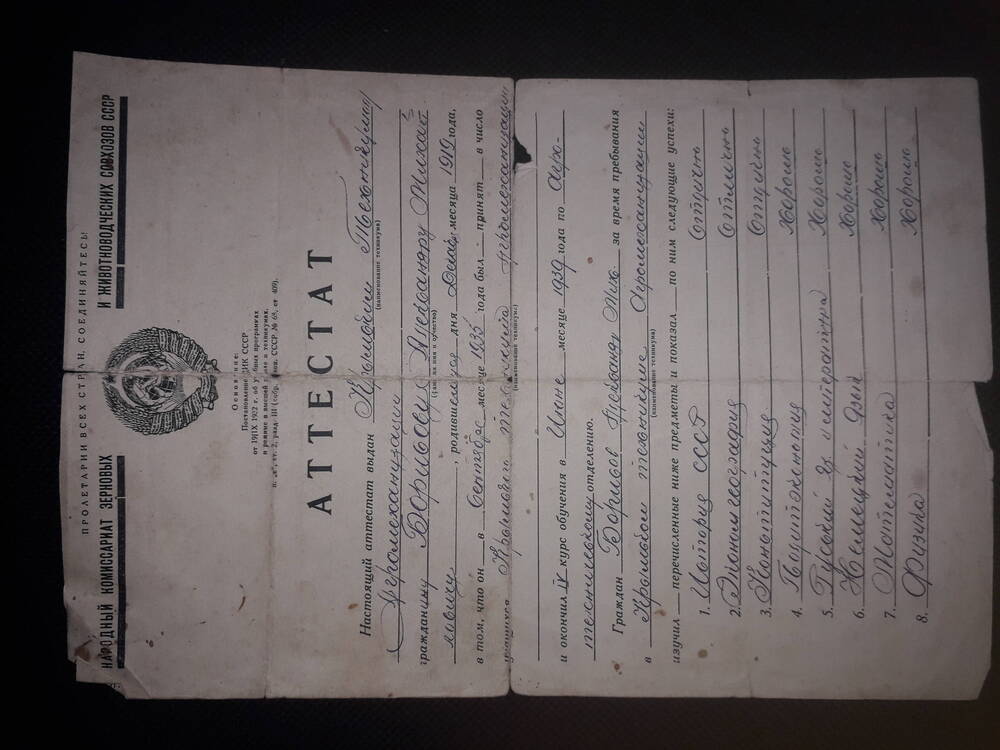 ПРОЛЕТАРИИ ВСЕХ СТРАН, СОЕДИНЯЙТЕСЬ!
НАРОДНЫЙ КОМИССАРИАТ ЗЕРНОВЫХ И ЖИВОТНОВОДЧЕСКИХ СОВХОЗОВ СССР
Основание:
Постановление ЦИК СССР
от 19/IX 1932 г. об учебных программах
и режиме в высшей школе и техникумах,
ст. 2, разд. III (собр. зак. СССР № 68, ст. 409).
АТТЕСТАТ
Настоящий аттестат выдан Техникумом
(наименование техникума)
Агромеханизации
гражданину Борисову Александру Михай
(фамилия имя и отчество)
ловичу, родившемуся дня Декаб. месяца 1919 года,
в том, что он в Сентябре месяце 1935 года был принят в число
учащихся техникума Агромеханизации
(наименование техникума)
и окончил IV курс обучения в Июне месяце 1939 года по Агро-
техническому отделению.
Граждан Борисов Александр Мих. за время пребывания
в техникуме Агромеханизации
(наименование техникума)
изучил перечисленные ниже предметы и показал по ним следующие успехи:
1. История СССР Отлично
2. Экономгеография Отлично
3. Конституция Отлично
4. Политэкономия Хорошо
5. Русский яз. и литература Хорошо
6. Немецкий язык Хорошо
7. Математика Хорошо
8. Физика Хорошо